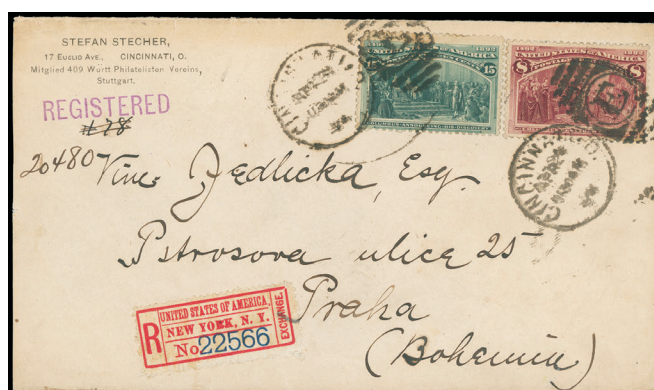 STEFAN STECHER,
17 EUCLID AVE, CINCINNATI, O.
Mitglied 409 Württ Philatelisten Vereins,
Stuttgart.
REGISTERED
#78
20480
1892 1892
UNITED STATES OF AMERICA
15
COLUMBUS ANNOUNCING HIS DISCOVERY
1492 1892
UNITED STATES OF AMERICA
8 8
CINCINNATI
CINCINNATI, O.
Vinc. Jedlicka, Esq.
Pstrosova ulice 25
Praha
(Bohemia)
UNITED STATES OF AMERICA,
R NEW YORK, N. Y. EXCHANGE.
No 22566